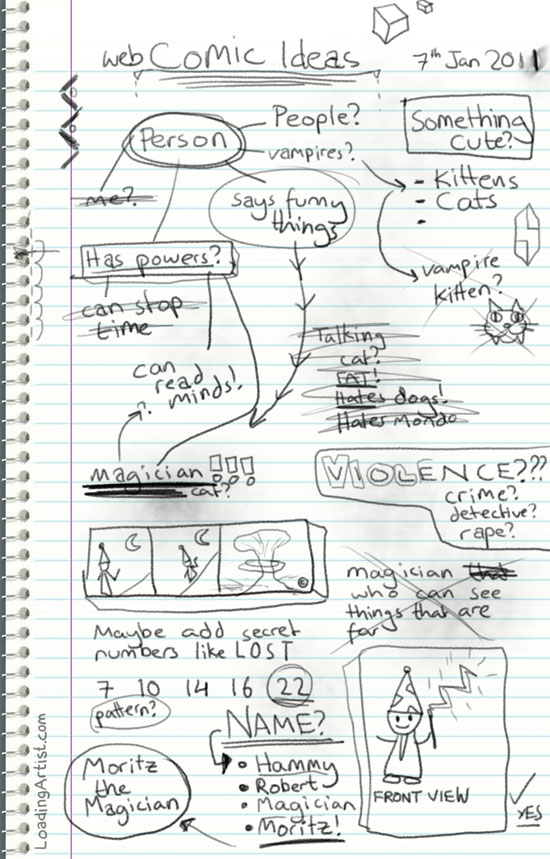 web Comic Ideas
7th Jan 2011
Person
People?
vampires?
Something
Cute?
- Kittens
- Cats
-
me?
says funny
things
Has powers?
vampire
kitten?
can stop
time
can
read
minds!
Talking
cat?
FAT!
Hates dogs!
Hates Mondo
magician!!!
cat?
VIOLENCE???
crime?
detective?
rape?
magician that
who can see
things that are
far
Maybe add secret
numbers like LOST
7 10 14 16 22
pattern?
NAME?
• Hammy
• Robert
• Magician
• Moritz!
Moritz
the
Magician
FRONT VIEW
YES
LoadingArtist.com